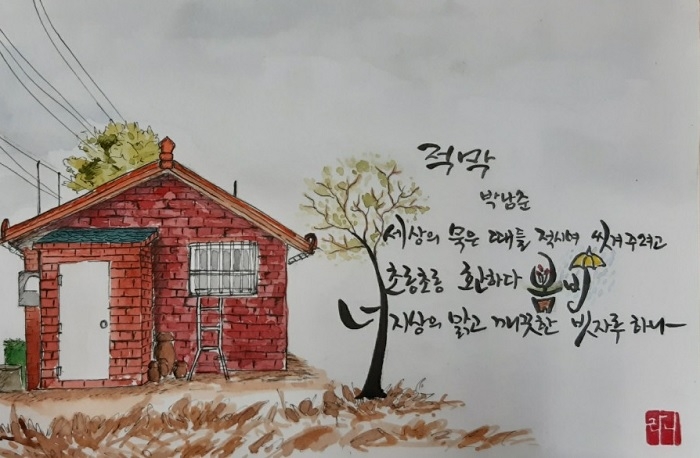 적막
박남준
세상의 묵은 때들 적시며 씻겨주려고
초롱초롱 환하다 봄비
너 지상의 맑고 깨끗한 빗자루 하나